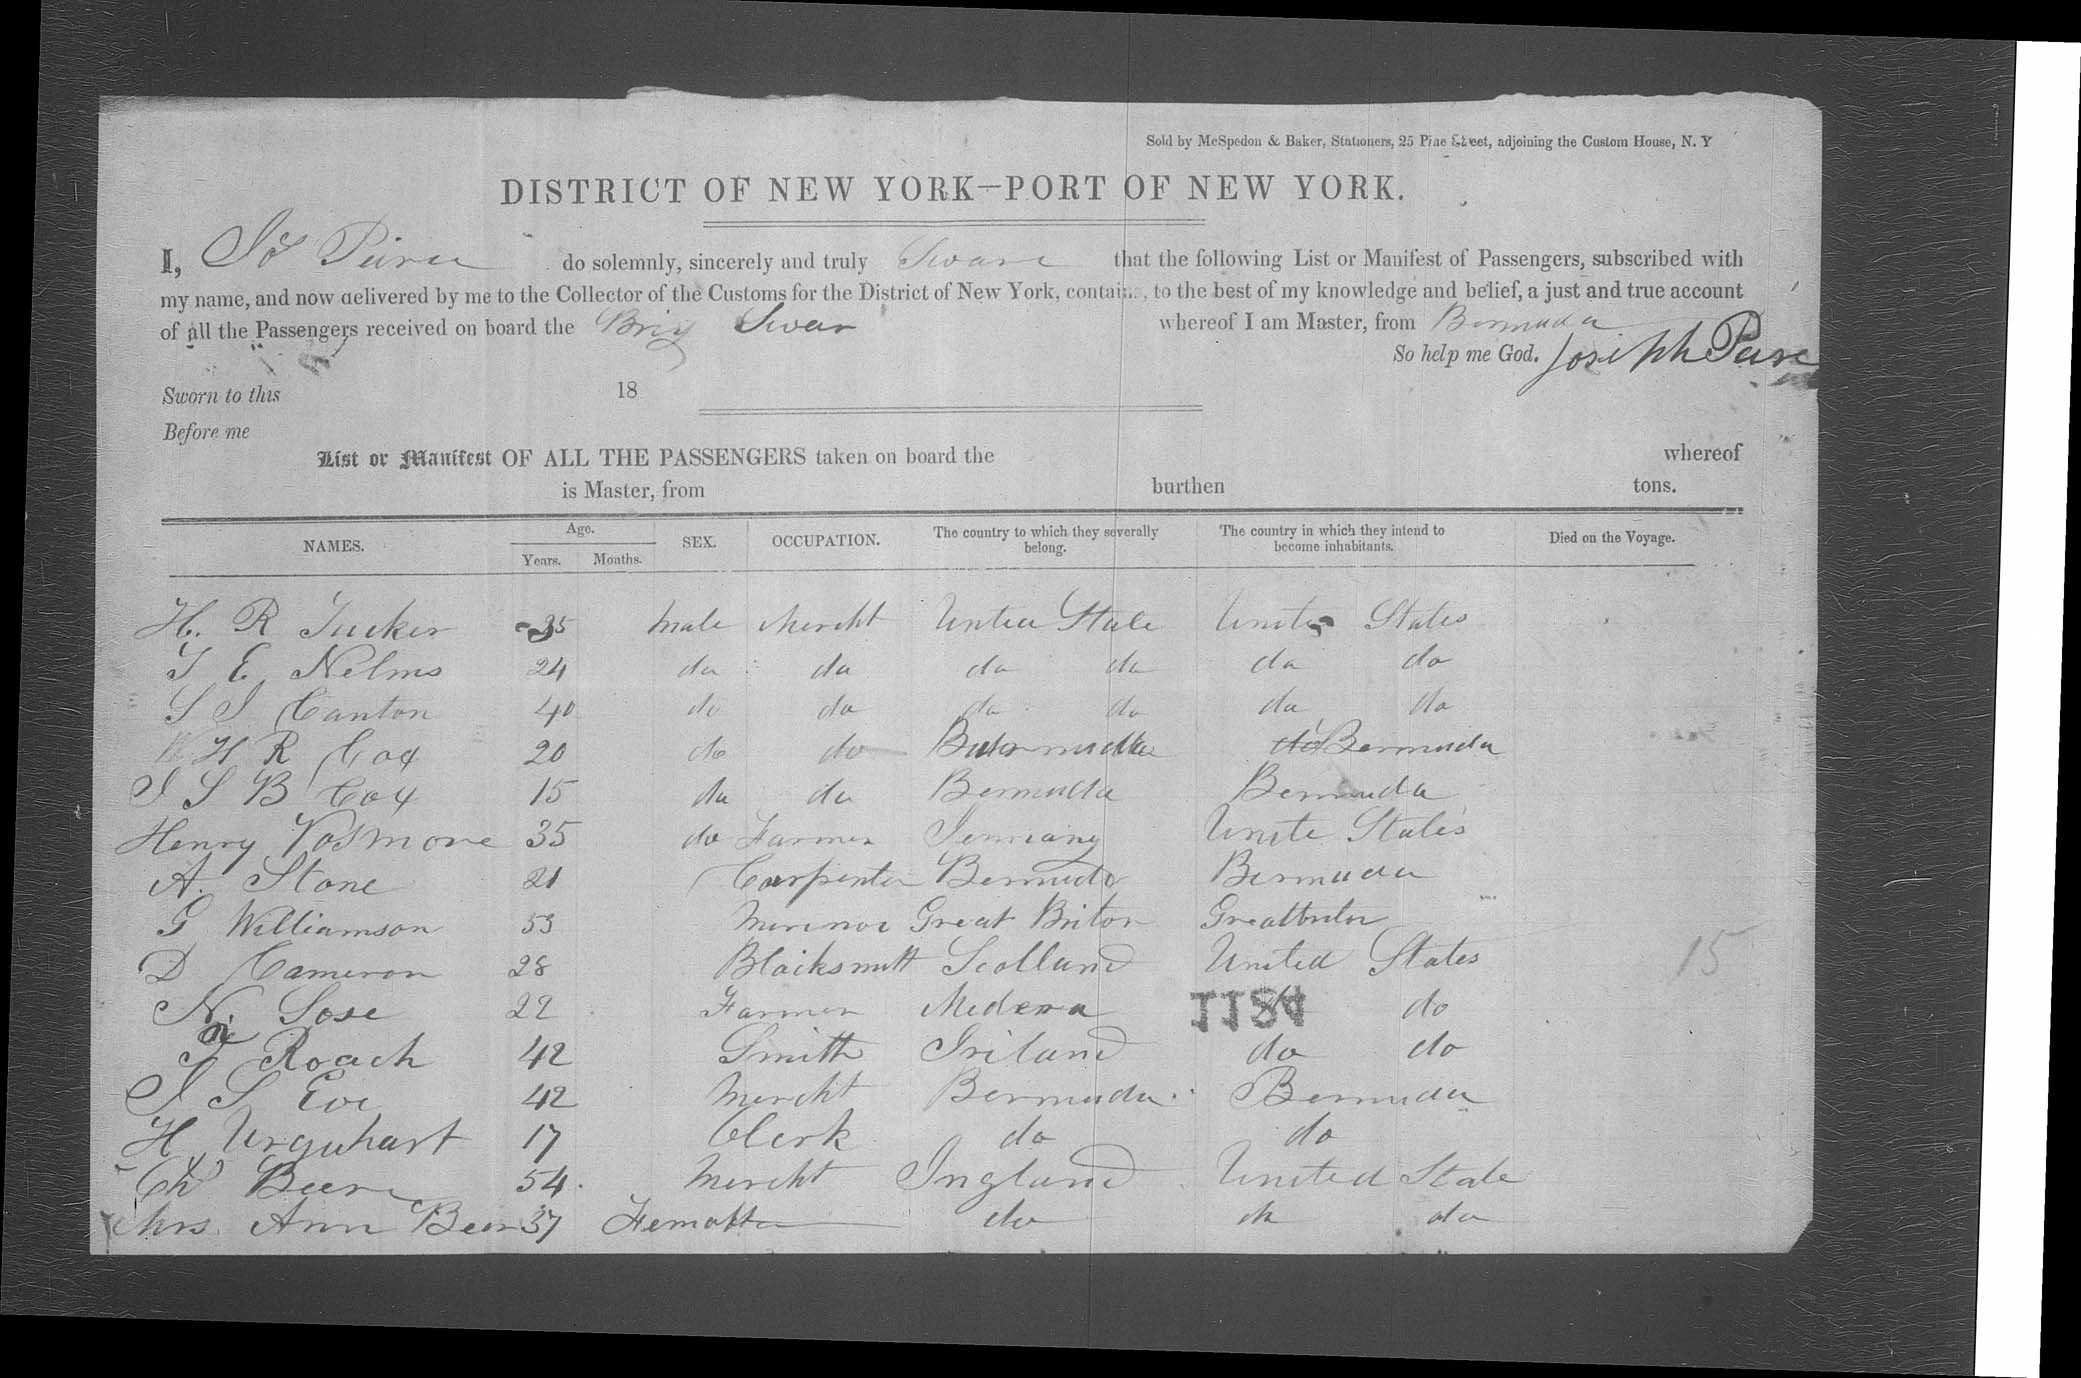 Sold by McSpedon & Baker, Stationers, 25 Pine Street, adjoining the Custom House, N. Y
DISTRICT OF NEW YORK—PORT OF NEW YORK.
I, Jos Peirce do solemnly, sincerely and truly Swear that the following List or Manifest of Passengers, subscribed with
my name, and now delivered by me to the Collector of the Customs for the District of New York, contains, to the best of my knowledge and belief, a just and true account
of all the Passengers received on board the Brig Swan whereof I am Master, from Bermuda
So help me God. Joseph
Sworn to this 18
Before me
List or Manifest OF ALL THE PASSENGERS taken on board the whereof
is Master, from burthen tons.
NAMES. Age. Years. Months. SEX. OCCUPATION. The country to which they severally belong. The country in which they intend to become inhabitants. Died on the Voyage.
H. R Tucker 35 Male Mercht United State States
J E Nelms 24 do do do do do do
S J Canton 40 do do do do do do
W H R Cox 20 do do do Bermuda
J S B Cox 15 do do Bermuda Bermuda
Henry 35 do Farmer Jermany Unite States
A. Stone 21 Carpenter Bermuda Bermuda
G Williamson 53 Great Briton Greatbriton
D Cameron 28 Blacksmitt Scolland United States
15
N Jose 22 Farmer Medera 1184 do
Roach 42 Smith Iriland do do
J S Eve 42 Mercht Bermuda Bermuda
H Urquhart 17 Clerk do do
Chs Beer 54 Mercht Ingland United State
Mrs. Ann Beer 37 do do do